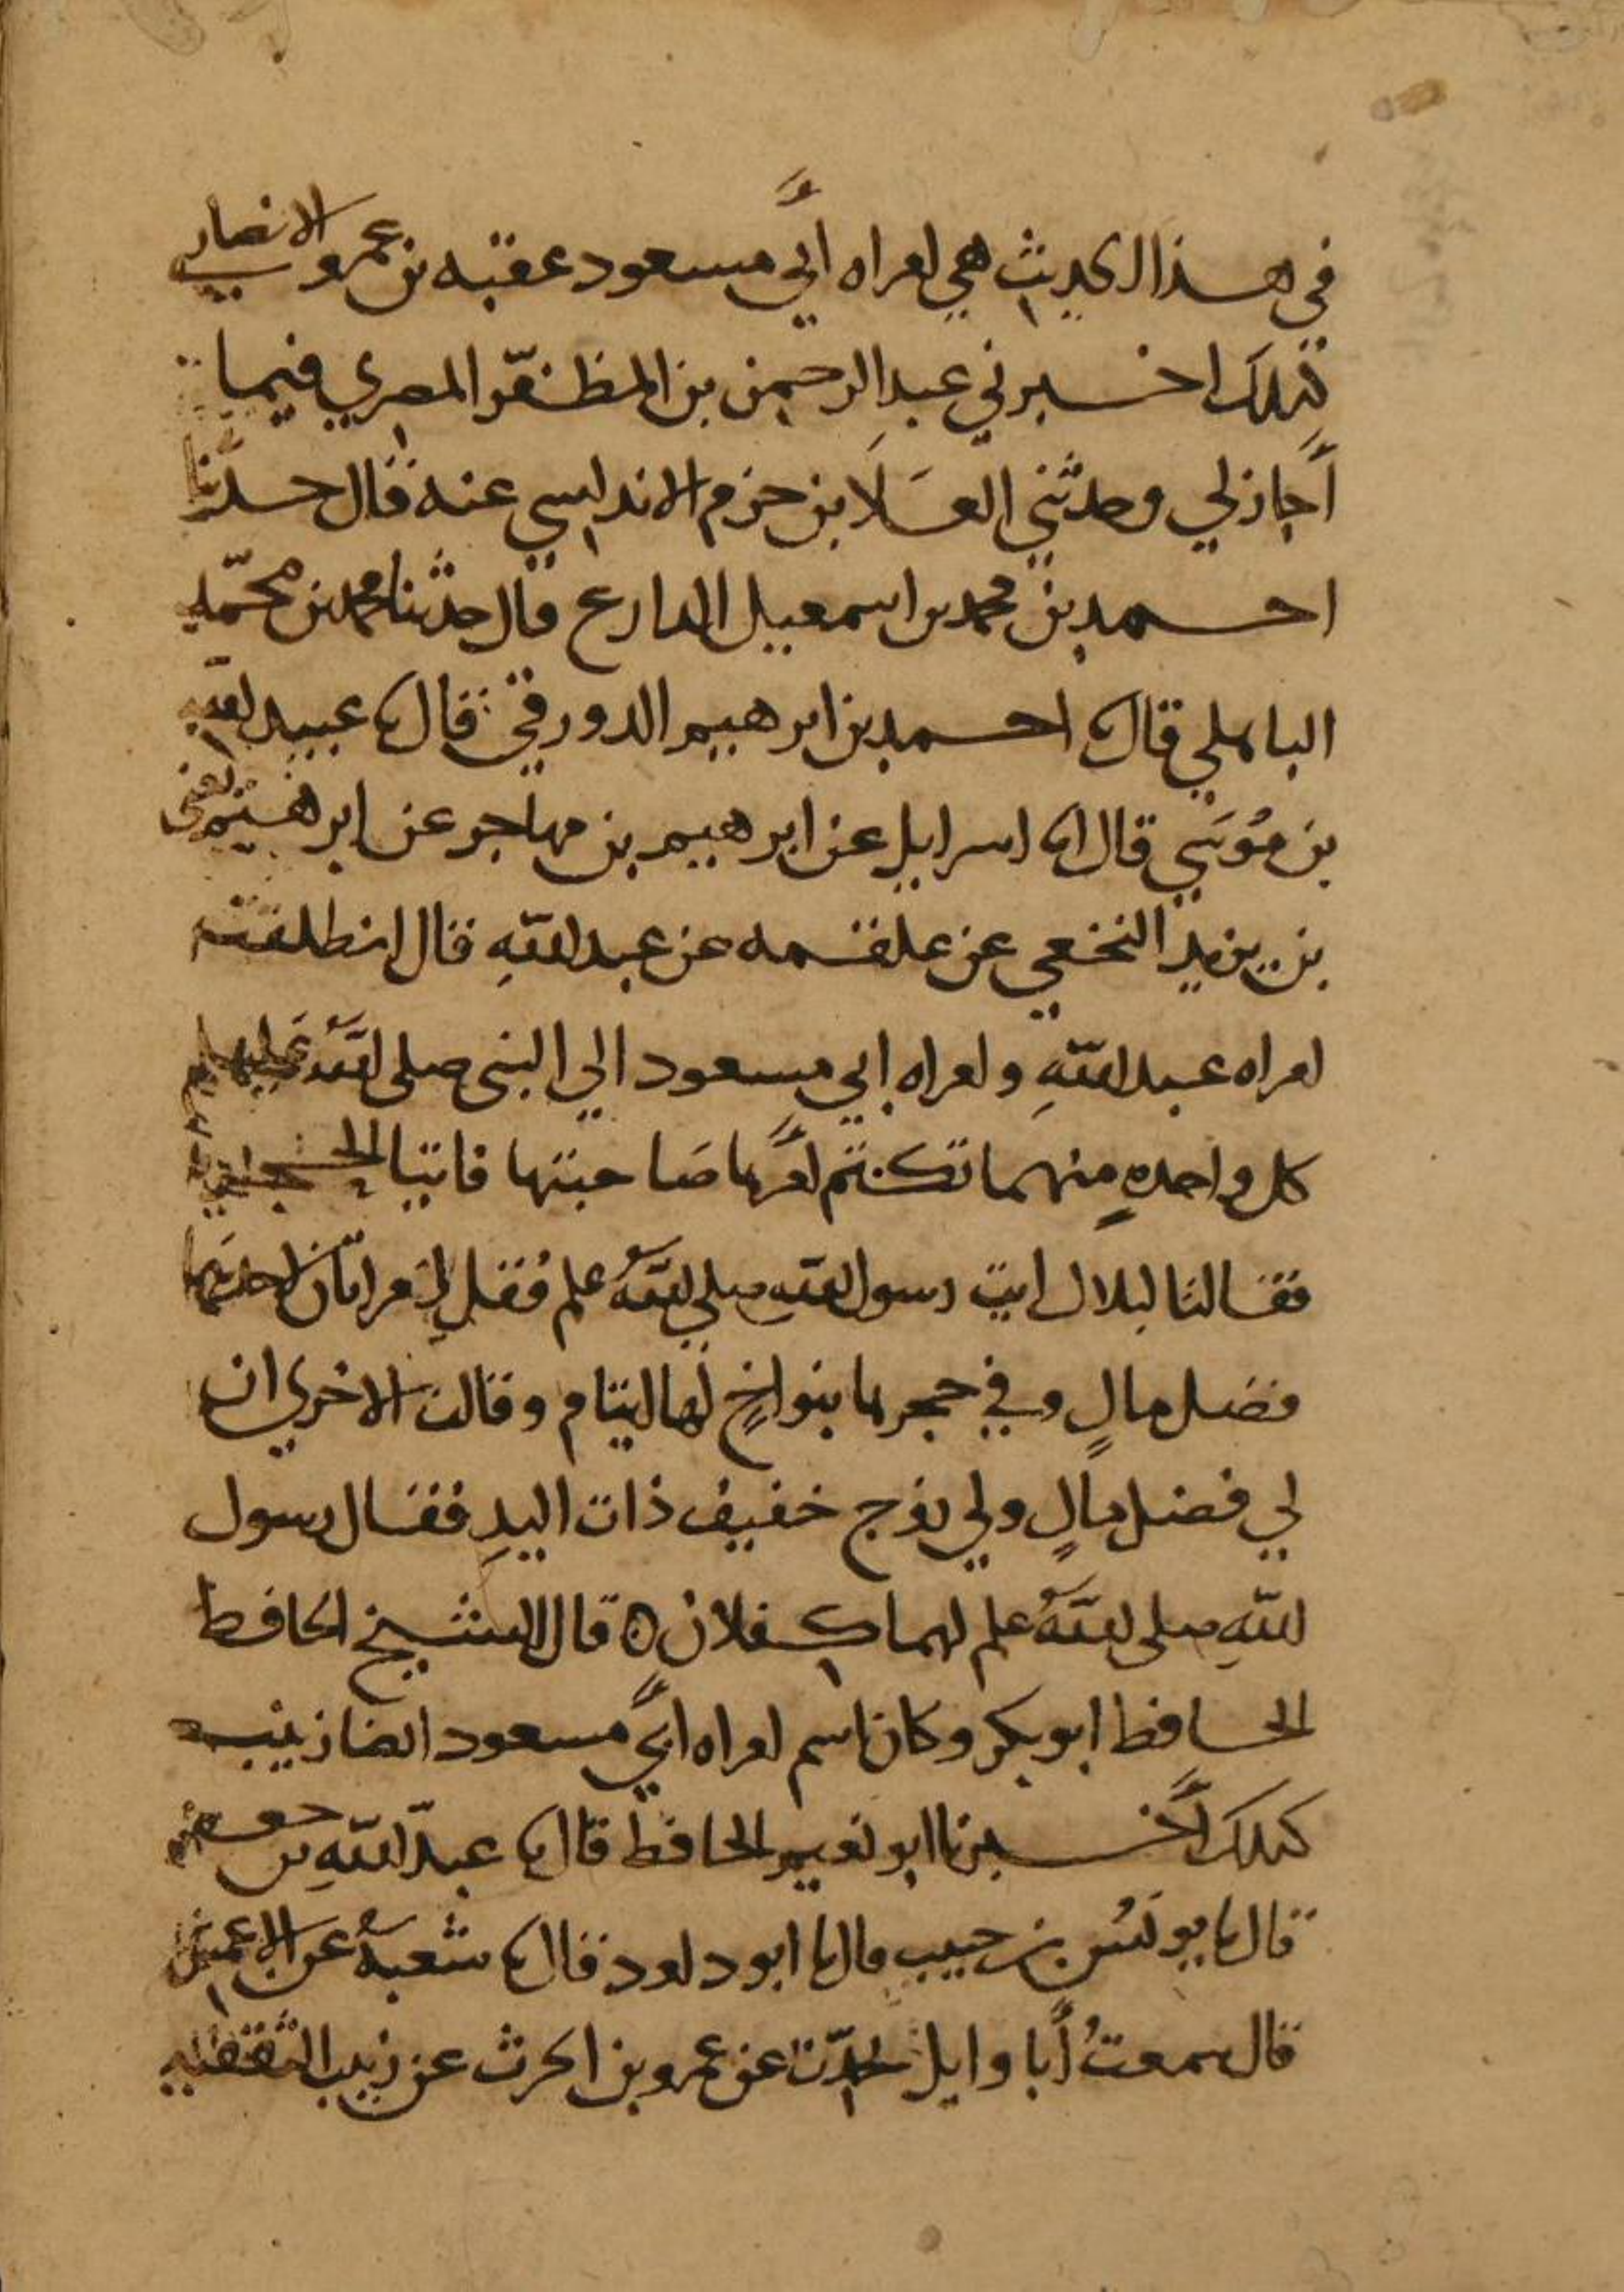 في هذا الحديث هي امراه أبي مسعود عقبه بن عمرو الانصاري
كذلك اخبرني عبد الرحمن بن المظفر المصري فيما
أجاز لي وحدثني العلا بن حزم الاندلسي عنه قال حدثنا
احمد بن محمد بن اسمعيل قال حدثنا محمد بن محمد
الباهلي قال نا احمد بن ابرهيم الدورقي قال نا عبيد الله
بن موسي قال انا اسرايل عن ابرهيم بن مهاجر عن ابرهيم
بن يزيد النخعي عن علقمه عن عبد الله قال انطلقت
امراه عبد الله وامراه ابي مسعود الي النبي صلى الله عليه وسلم
كل واحده منهما تكتم امرها صاحبتها فاتيا الحجره
فقالتا لبلال ايت رسول الله صلي الله علم فقل امراتان لاحداهما
فضل مال وفي حجرها بنو اخ لها ايتام وقالت الاخري ان
لي فضل مال ولي زوج خفيف ذات اليد فقال رسول
الله صلى الله علم لهما كفلان ه قال الشيخ الحافظ
الحافظ ابو بكر وكان اسم امراه أبي مسعود ايضا زينب
كذلك أخبرنا ابو نعيم الحافظ قال نا عبد الله بن جعفر
قال نا يونس بن حبيب قال نا ابو داود قال نا شعبة عن الاعمش
قال سمعت أبا وايل يحدث عن عمرو بن الحرث عن زينب الثقفيه